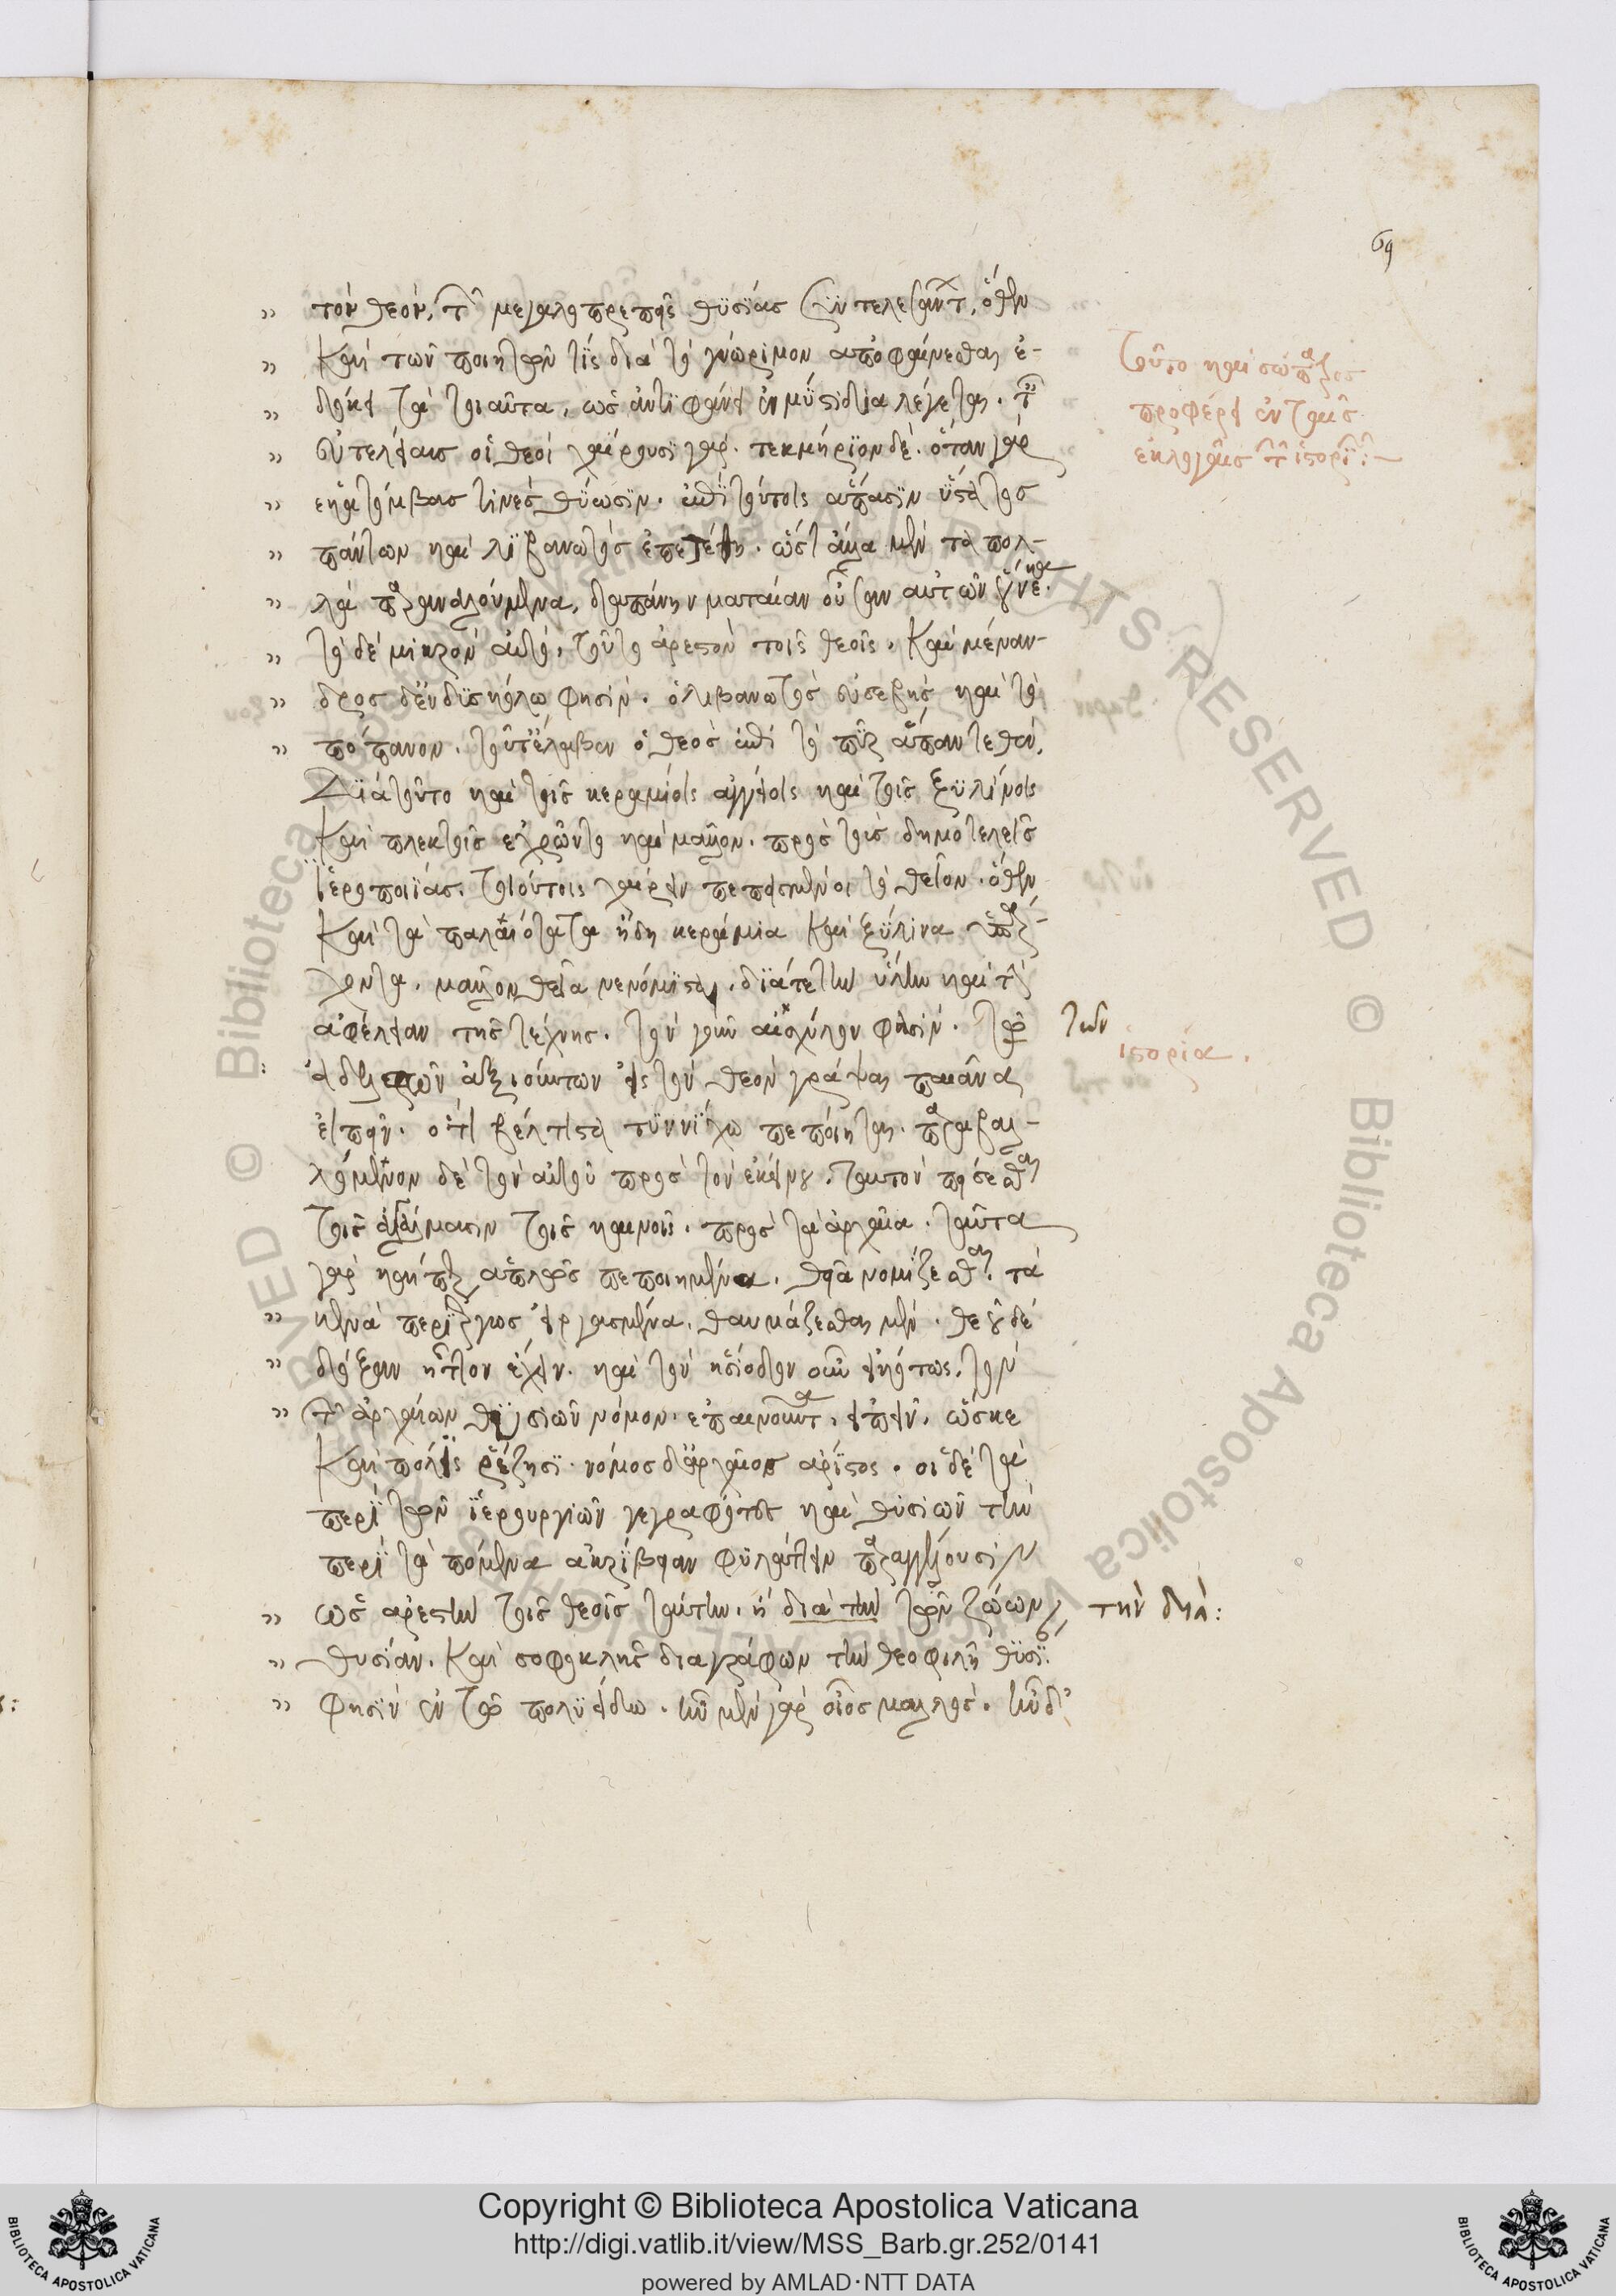 69
τὸν θεὸν, τ μεγαλοπρεπεῖς θυσίας συντελεσαντ, ὅθεν
καὶ τῶν ποιητῶν τίς διὰ τὸ γνώριμον ἀποφαίνεσθαι ἐ-
δόκει τὰ τοιαῦτα, ὡς ἀντιφάνει ἐν μύστιδι λέγεται. τ
εὐτελείαις οἱ θεοὶ χαίρουσι γάρ. τεκμήριον δέ. ὅταν γὰρ
ἑκατόμβας τινὲς θύωσιν. ἐπὶ τούτοις ἅπασιν ὕστατος
πάντων καὶ λιβανωτὸς ἐπετέθη. ὥστ ἄλλα μὲν τὰ πολ-
λὰ παραναλούμενα, δαπάνην ματαίαν οὖσαν αὐτῶν εἵνεκα.
τὸ δὲ μικρὸν αὐτὸ, τοῦτο ἀρεστὸν τοῖς θεοῖς. καὶ μέναν-
δρος δ' ἐν δυσκόλω φησίν. ὁ λιβανωτὸς εὐσεβὴς καὶ τὸ
πόπανον. τοῦτ' ἔλαβεν ὁ θεὸς ἐπὶ τὸ πῦρ ἅπαν τεθέν.
Διὰ τοῦτο καὶ τοῖς κεραμίοις ἀγγείοις καὶ τοῖς ξυλίνοις
καὶ πλεκτοῖς ἐχρῶντο καὶ μᾶλλον. πρὸς τὰς δημοτελεῖς
ἱεροποιίας. τοιούτοις χαίρειν πεπεισμένοι τὸ θεῖον. ὅθεν
καὶ τὰ παλαιότατα ἤδη κεράμια καὶ ξύλινα ὑπάρ-
χοντα. μᾶλλον θεῖα νενόμισται. διά τε τὴν ὕλην καὶ τ
ἀφέλειαν τῆς τέχνης. τὸν γοῦν αἰσχύλον φησίν. τῶν
ἀδελφῶν ἀξιούντων εἰς τὸν θεὸν γράψαι παιᾶνα
εἰπεῖν. ὅτι βέλτιστα τυννίχω πεποίηται. παραβαλ-
λόμενον δὲ τὸν αὐτοῦ πρὸς τὸν ἐκείνου. ταυτὸν πείσεσθαι
τοῖς ἀγάλμασιν τοῖς καινοῖς. πρὸς τὰ ἀρχαῖα. ταῦτα
γὰρ καίπερ ἁπλῶς πεποιημένα. θεῖα νομίζεσθαι. τὰ
καινὰ περιέργως εἰργασμένα. θαυμάζεσθαι μὲν. θεοῦ δὲ
δόξαν ἧττον ἔχειν. καὶ τὸν ἡσίοδον οὖν εἰκότως. τὸν
τ ἀρχαίων θυσιῶν νόμον. ἐπαινοῦντα, εἰπεῖν. ὥς κε
καὶ πόλις ῥέζησι. νόμος δ' ἀρχαῖος ἄριστος. οἱ δὲ τὰ
περὶ τῶν ἱερουργιῶν γεγραφότες καὶ θυσιῶν τὴν
περὶ τὰ πόπανα ἀκρίβειαν φυλάττειν παραγγέλλουσιν
ὡς ἀρεστὴν τοῖς θεοῖς ταύτην. ἢ διὰ τὴν τῶν ζώων
θυσίαν. καὶ σοφοκλῆς διαγράφων τὴν θεοφιλῆ θυσί
φησὶν ἐν τῶ πολυείδω. ἦν μὲν γὰρ οἰὸς μαλλὸς. ἦν δ'
τοῦτο καὶ σώπατρος
προφέρει ἐν ταῖς
ἐκλογαῖς τ ἱστορι:
τῶν
ἱστορία.
τὴν διὰ:
Copyright © Biblioteca Apostolica Vaticana
http://digi.vatlib.it/view/MSS_Barb.gr.252/0141
powered by AMLAD·NTT DATA
BIBLIOTECA APOSTOLICA VATICANA
BIBLIOTECA APOSTOLICA VATICANA